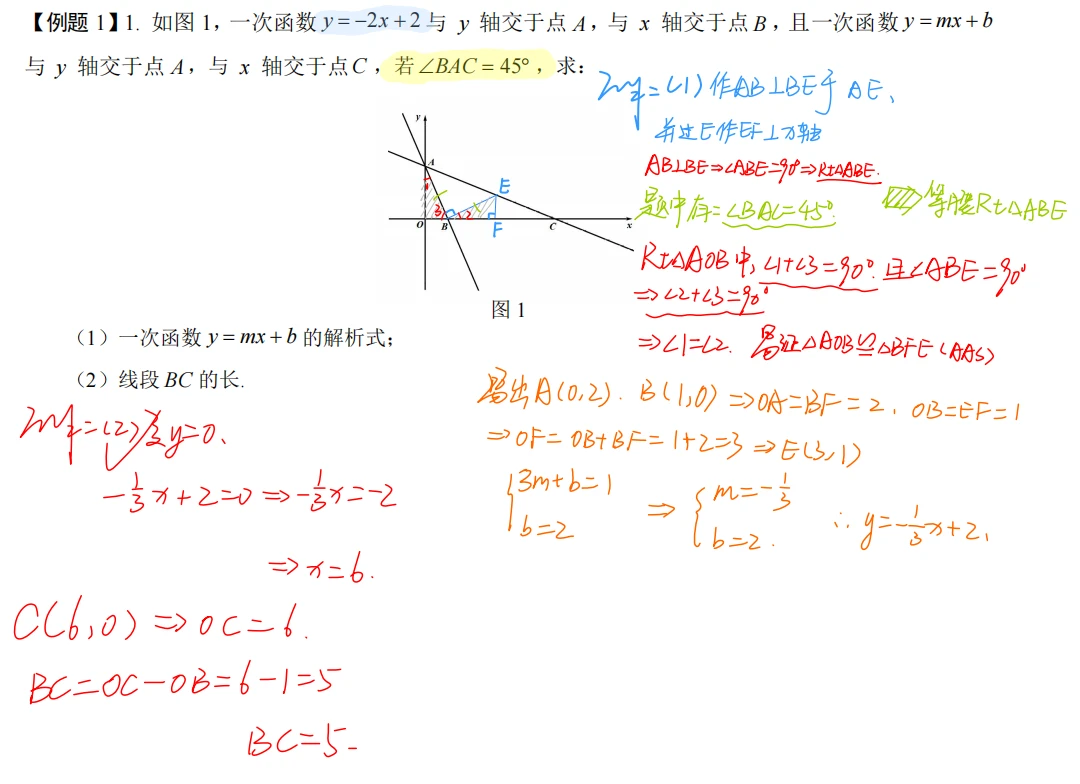 【例题 1】1. 如图 1，一次函数 y = −2x + 2 与 y 轴交于点 A，与 x 轴交于点 B，且一次函数 y = mx + b
与 y 轴交于点 A，与 x 轴交于点 C，若 ∠BAC = 45°，求：
解=(1)作AB⊥BE于AE、
并过E作EF⊥x轴
AB⊥BE⇒∠ABE=90°⇒Rt△ABE.
题中有=∠BAC=45° ⇒ 等腰Rt△ABE
Rt△AOB中, ∠1+∠3=90°. 且∠ABE=90°
⇒∠2+∠3=90°
⇒∠1=∠2. 易证△AOB≌△BFE(AAS)
y
A
E
1
3
2
O
B
F
C
x
图 1
（1）一次函数 y = mx + b 的解析式；
（2）线段 BC 的长.
易出A(0,2). B(1,0) ⇒OA=BF=2、OB=EF=1
⇒OF=OB+BF=1+2=3 ⇒E(3,1)
{3m+b=1 ⇒ {m=-1/3
b=2 b=2. ∴y=-1/3x+2、
解=(2)令y=0、
-1/3x+2=0 ⇒-1/3x=-2
⇒x=6.
C(6,0)⇒OC=6.
BC=OC-OB=6-1=5
BC=5.